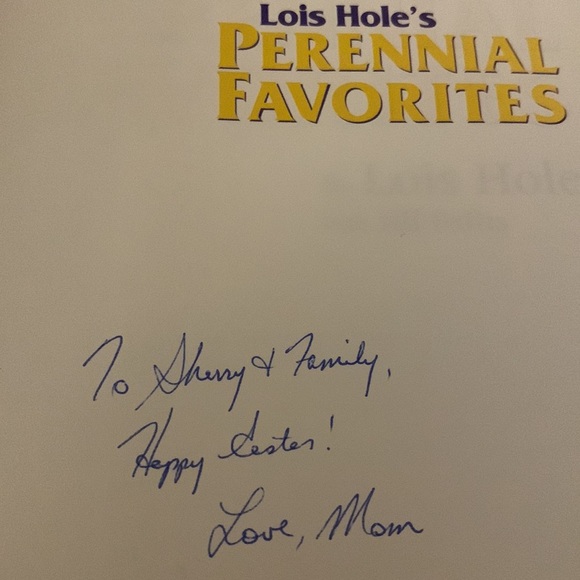 Lois Hole's
PERENNIAL
FAVORITES
Lois Hole
To Sherry & Family,
Happy Easter!
Love, Mom